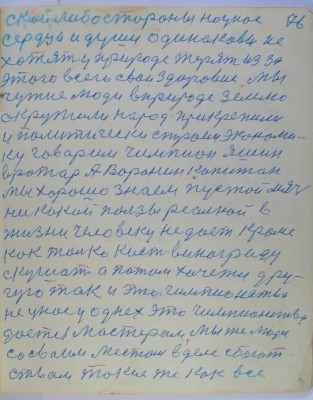 ской либо стороны ноуное 76
сердца и души одинаковы не
хотят и природе терят из за
этого всего свои здоровие мы
чужие люди в природе землю
окружили народ прикрепили
и политически строем экономи-
ку говорим чемпион яшин
вротар А Воронин капитан
мы хорошо знаем пустой мяч
никакой ползы реалной в
жизни человеку не дает кроме
как толко кист винограду
скушат а потом хочется дру-
гуго так и это чемпионство
не уное у однех это чемпионство
дается мастерам мы же люди
со своим местом в деле сбогат-
ствам такие же как все